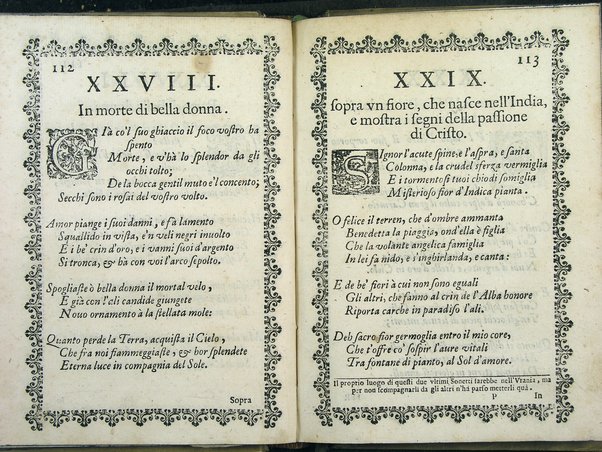 112
XXVIII.
In morte di bella donna.
Già co'l suo ghiaccio il foco vostro ha
spento
Morte, e v'hà lo splendor da gli
occhi tolto;
De la bocca gentil muto è'l concento;
Secchi sono i rosai del vostro volto.
Amor piange i suoi danni, e fà lamento
Squallido in vista, e'n veli negri inuolto
E i be' crin d'oro, e i vanni suoi d'argento
Si tronca, & hà con voi l'arco sepolto.
Spogliaste ò bella donna il mortal velo,
E già con l'eli candide giungete
Nouo ornamento à la stellata mole:
Quanto perde la Terra, acquista il Cielo,
Che fra noi fiammeggiaste, & hor splendete
Eterna luce in compagnia del Sole.
Sopra
113
XXIX.
sopra vn fiore, che nasce nell'India,
e mostra i segni della passione
di Cristo.
Signor l'acute spine, e l'aspra, e santa
Colonna, e la crudel sferza vermiglia
E i tormentosi tuoi chiodi somiglia
Misterioso fior d'Indica pianta.
O felice il terren, che d'ombre ammanta
Benedetta la piaggia, ond'ella è figlia
Che la volante angelica famiglia
In lei fa nido, e s'inghirlanda, e canta:
E de be' fiori à cui non sono eguali
Gli altri, che fanno al crin de l'Alba honore
Riporta carche in paradiso l'ali.
Deh sacro fior germoglia entro il mio core,
Che t'offre co' sospir l'aure vitali
Tra fontane di pianto, al Sol d'amore.
Il proprio luogo di questi due vltimi Sonetti sarebbe nell'Vrania, ma
per non iscompagnarli da gli altri n'hà parso metterli quà.
P In